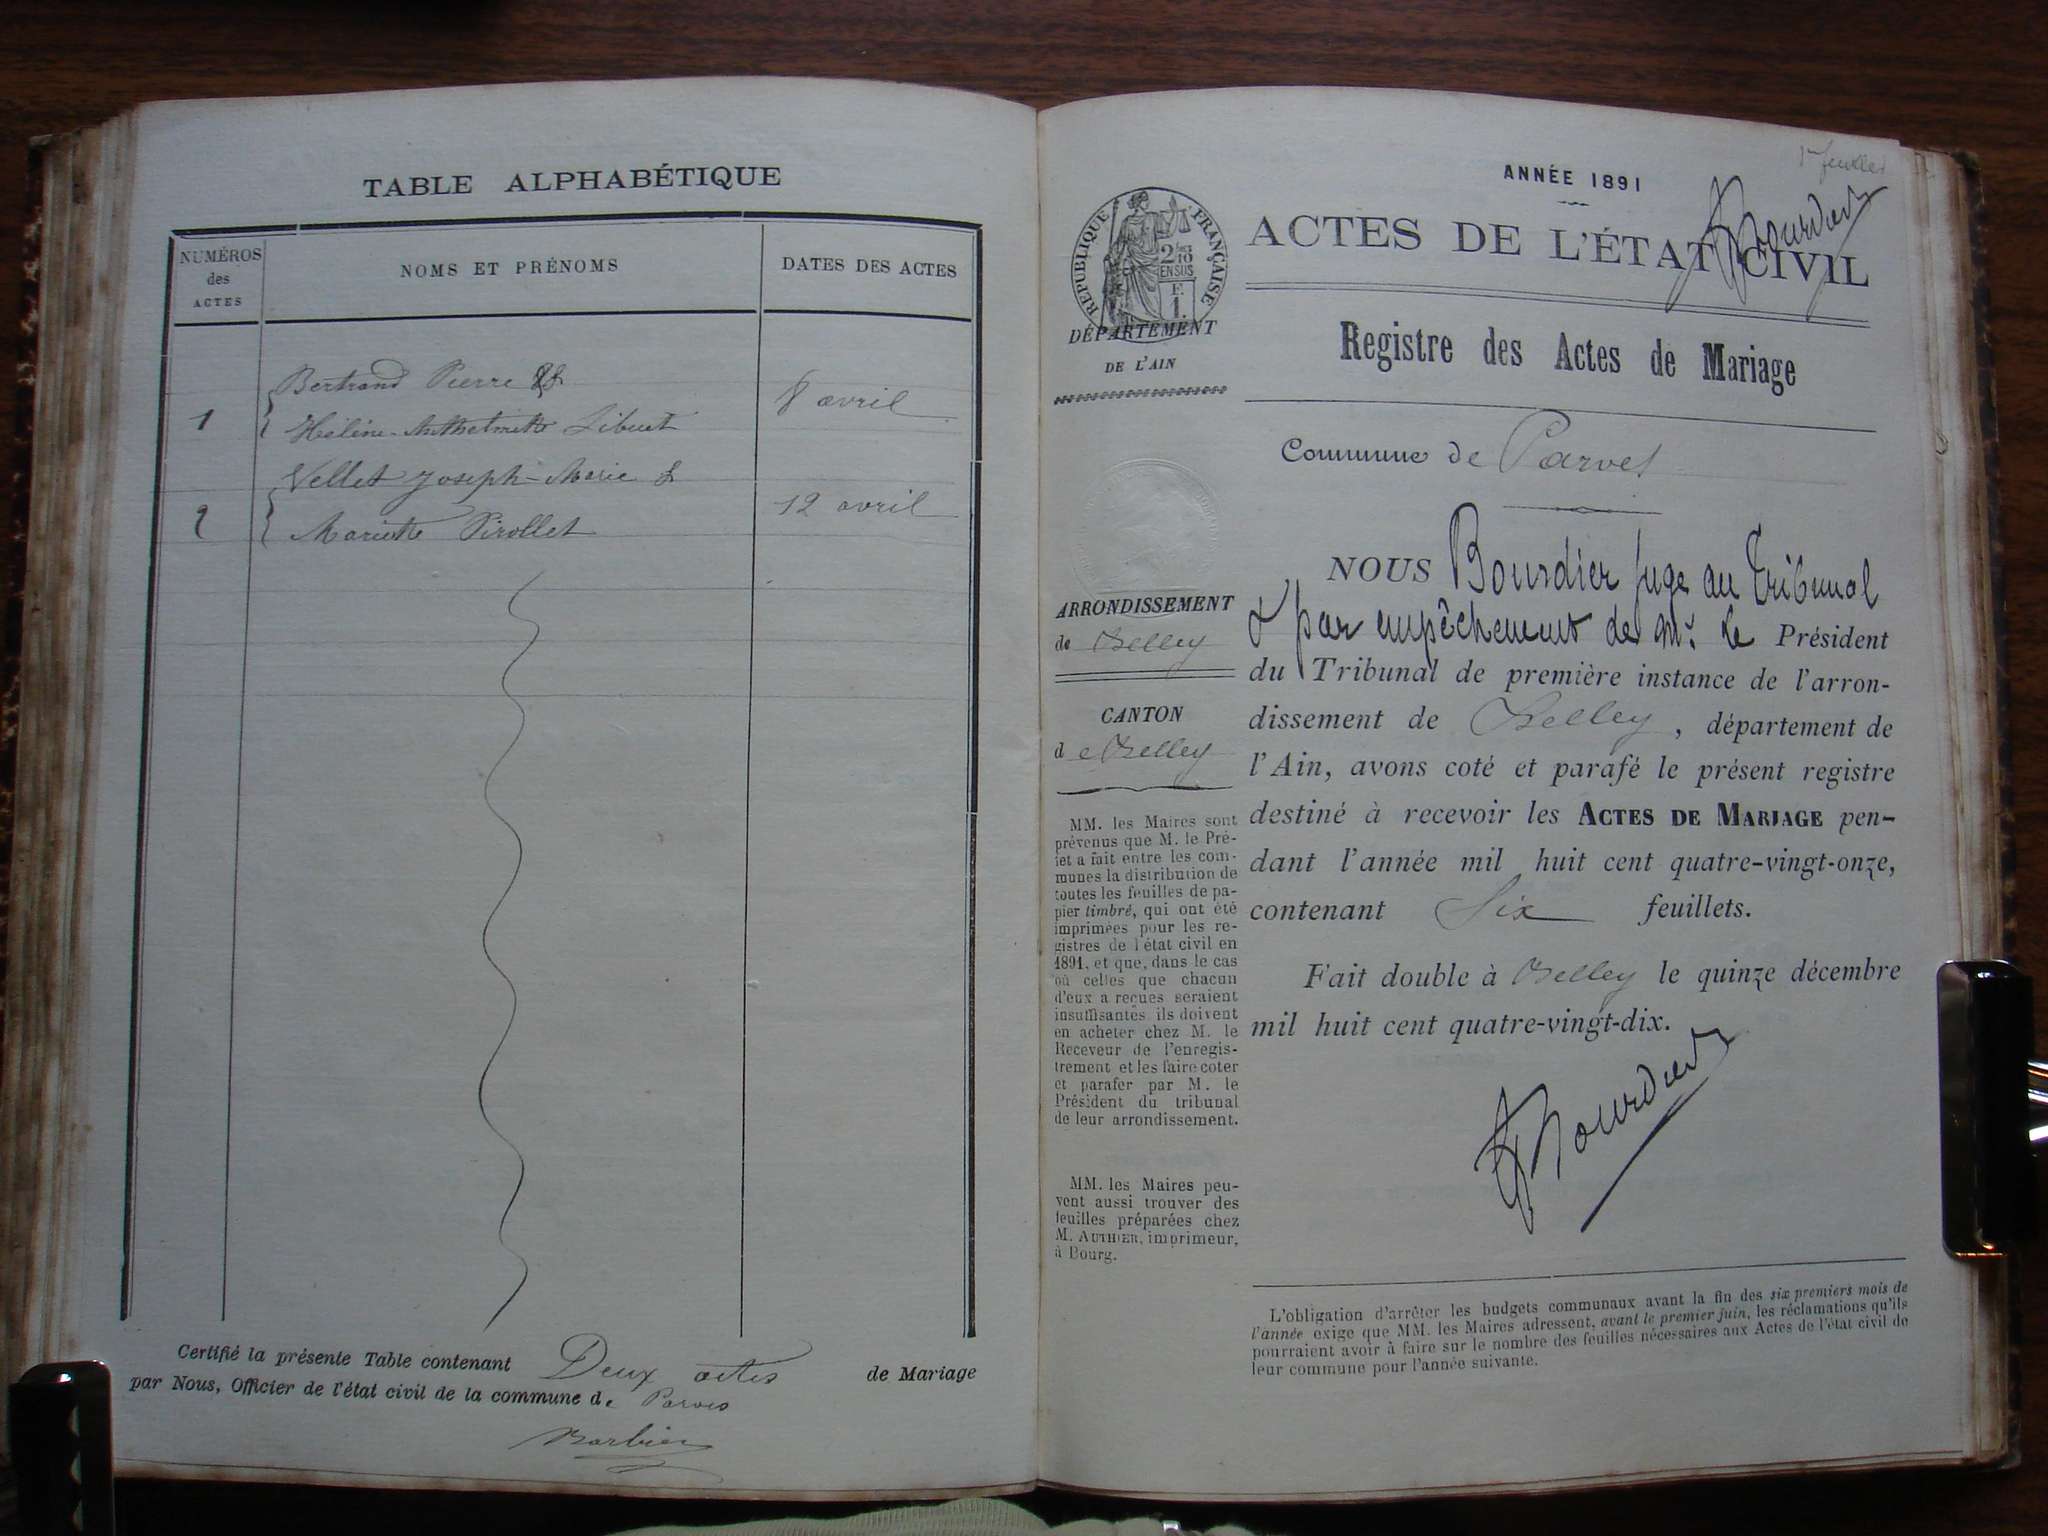 TABLE ALPHABÉTIQUE
NUMÉROS
des
ACTES
NOMS ET PRÉNOMS
DATES DES ACTES
Bertrand Pierre &
1
Hélène-Anthelmette
8 avril
Vellet Joseph-Marie &
2
Mariette Pirollet
12 avril
Certifié la présente Table contenant Deux actes de Mariage
par Nous, Officier de l'état civil de la commune de Parves
Barbier
1er feuillet
ANNÉE 1891
Bourdier
ACTES DE L'ÉTAT CIVIL
Registre des Actes de Mariage
RÉPUBLIQUE FRANÇAISE
2/10
EN SUS
F.
1.
DÉPARTEMENT
DE L'AIN
Commune de Parves
NOUS Bourdier juge au Tribunal
& par empêchement de Mr. le Président
du Tribunal de première instance de l'arron-
dissement de Belley, département de
l'Ain, avons coté et parafé le présent registre
destiné à recevoir les ACTES DE MARIAGE pen-
dant l'année mil huit cent quatre-vingt-onze,
contenant Six feuillets.
Fait double à Belley le quinze décembre
mil huit cent quatre-vingt-dix.
Bourdier
ARRONDISSEMENT
de Belley
CANTON
de Belley
MM. les Maires sont
prévenus que M. le Pré-
fet a fait entre les com-
munes la distribution de
toutes les feuilles de pa-
pier timbré, qui ont été
imprimées pour les re-
gistres de l'état civil en
1891, et que, dans le cas
où celles que chacun
d'eux a reçues seraient
insuffisantes ils doivent
en acheter chez M. le
Receveur de l'enregis-
trement et les faire coter
et parafer par M. le
Président du tribunal
de leur arrondissement.
MM. les Maires peu-
vent aussi trouver des
feuilles préparées chez
M. AUTHIER, imprimeur,
à Bourg.
L'obligation d'arrêter les budgets communaux avant la fin des six premiers mois de
l'année exige que MM. les Maires adressent, avant le premier juin, les réclamations qu'ils
pourraient avoir à faire sur le nombre des feuilles nécessaires aux Actes de l'état civil de
leur commune pour l'année suivante.